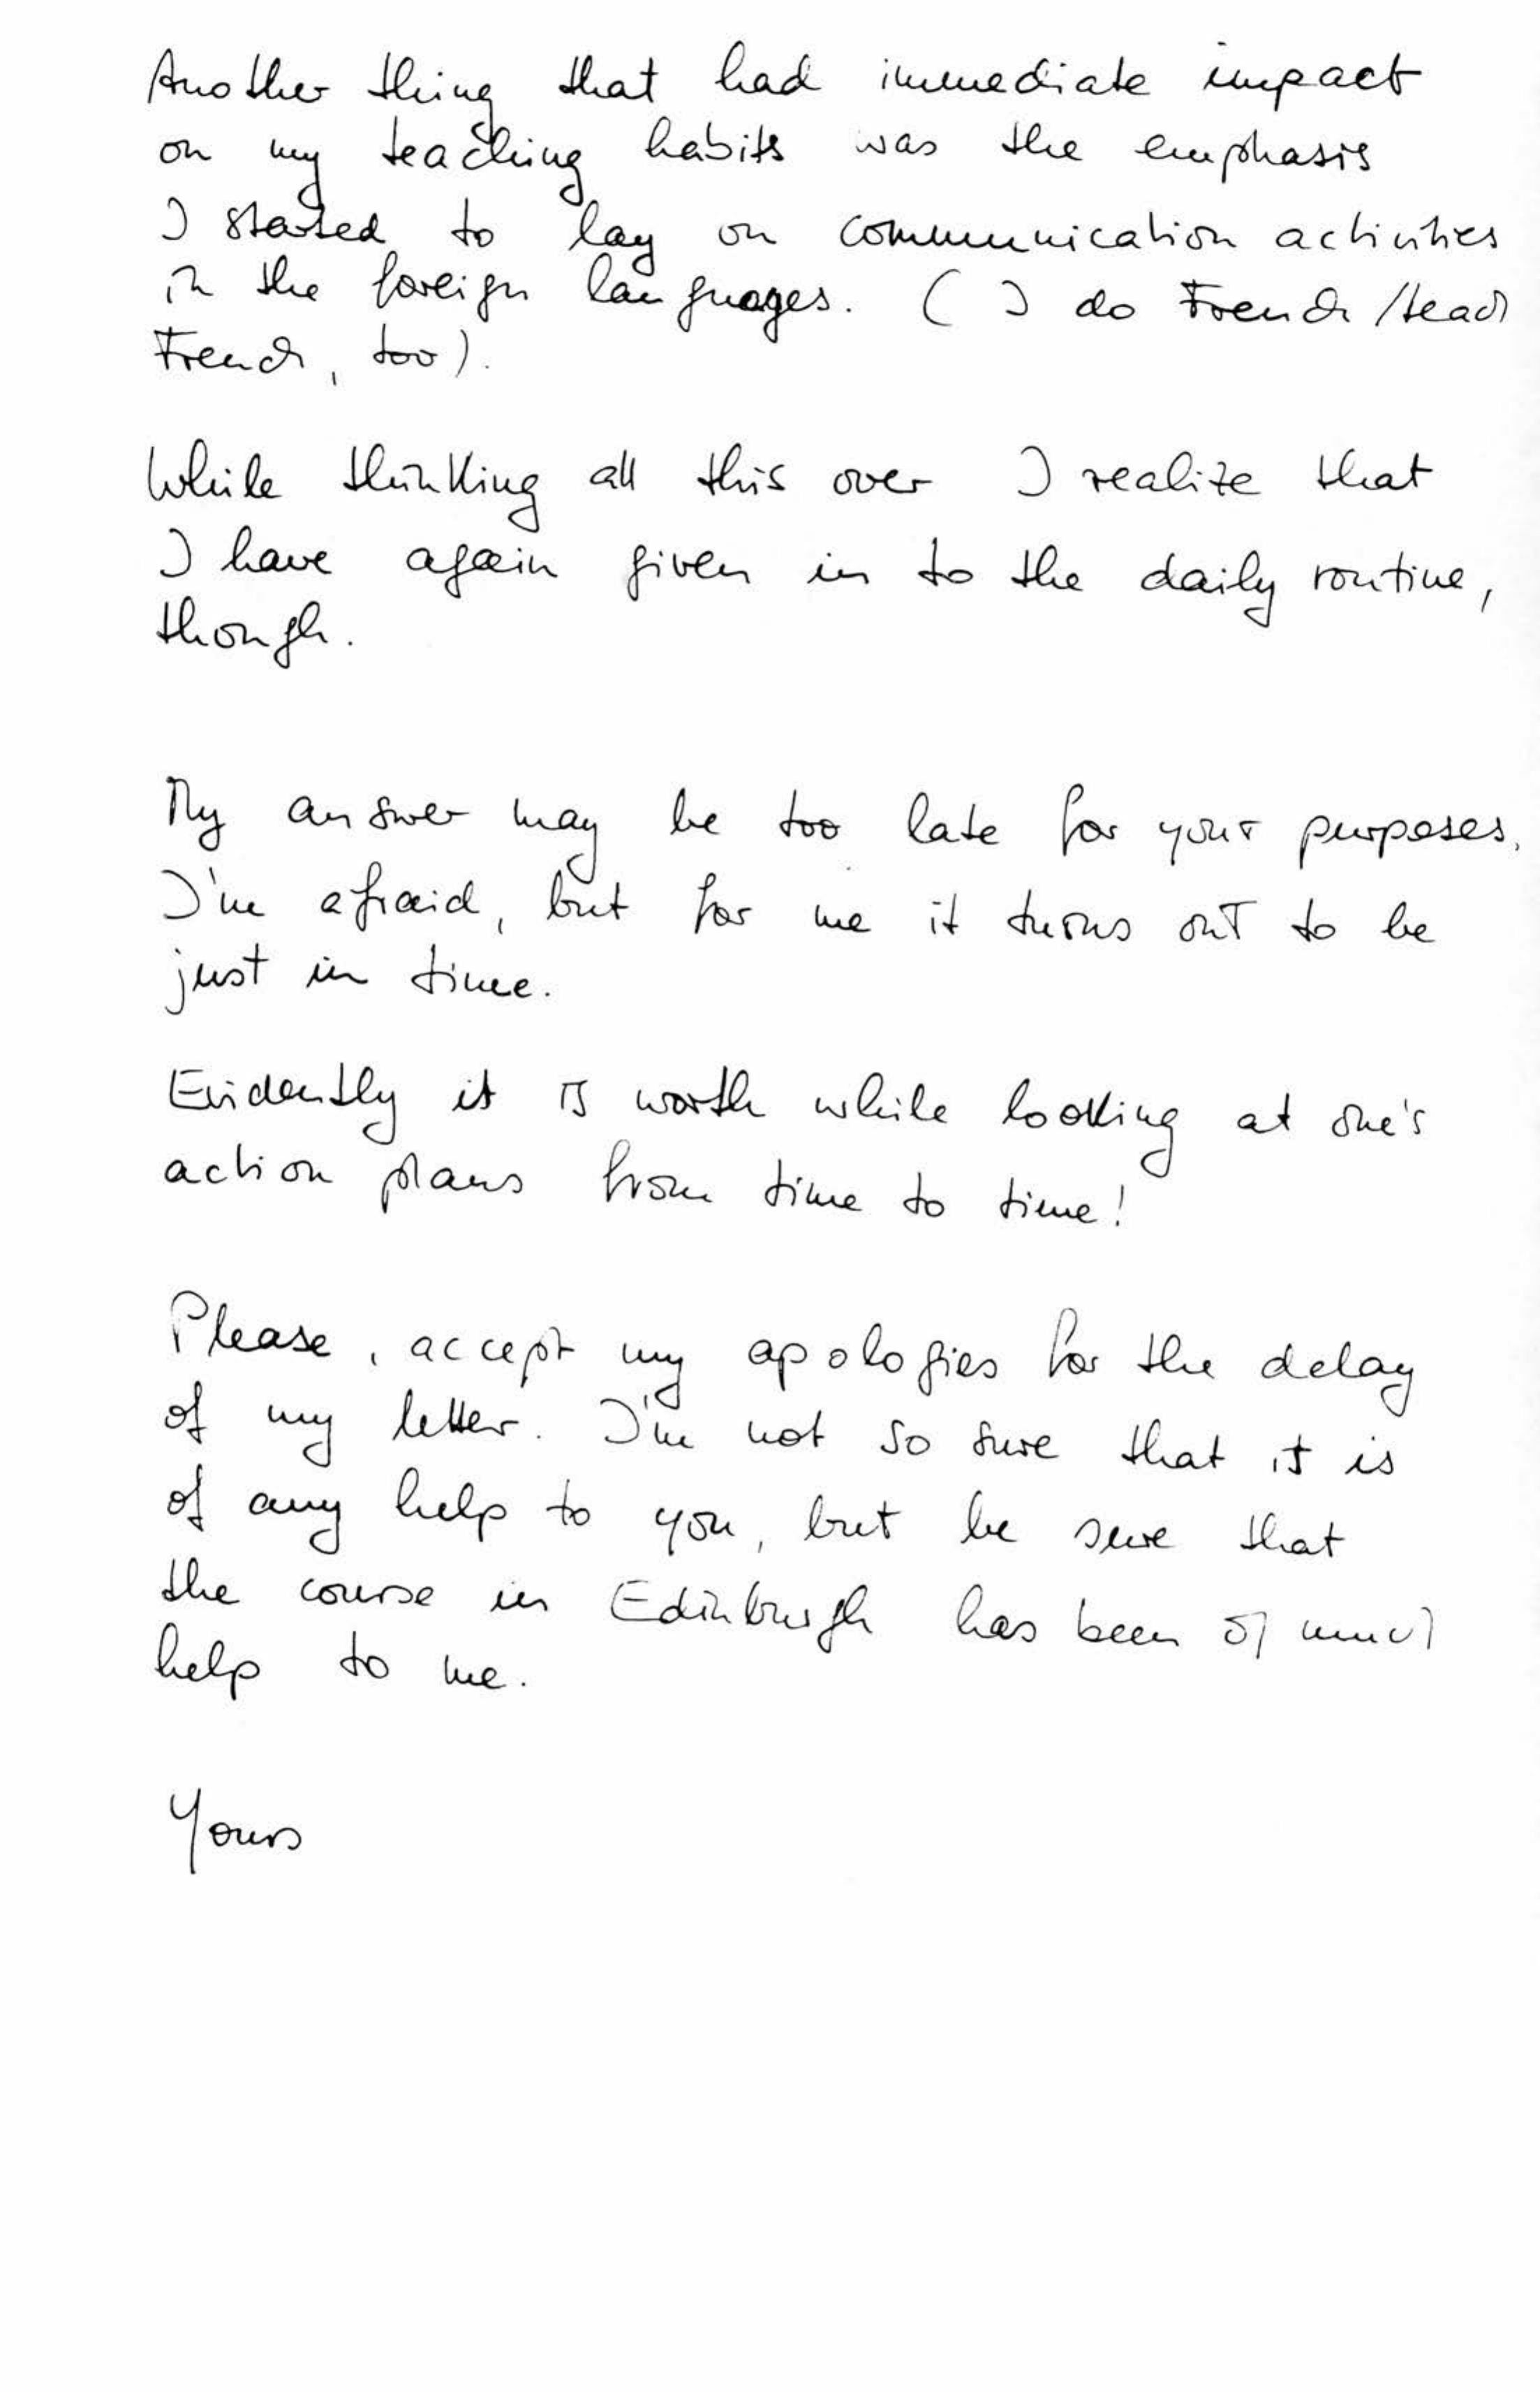 Another thing that had immediate impact
on my teaching habits was the emphasis
I started to lay on communication activities
in the foreign languages. ( I do French / teach
French, too).
While thinking all this over I realize that
I have again given in to the daily routine,
though.
My answer may be too late for your purposes,
I'm afraid, but for me it turns out to be
just in time.
Evidently it is worth while looking at one's
action plans from time to time!
Please, accept my apologies for the delay
of my letter. I'm not so sure that it is
of any help to you, but be sure that
the course in Edinburgh has been of much
help to me.
Yours